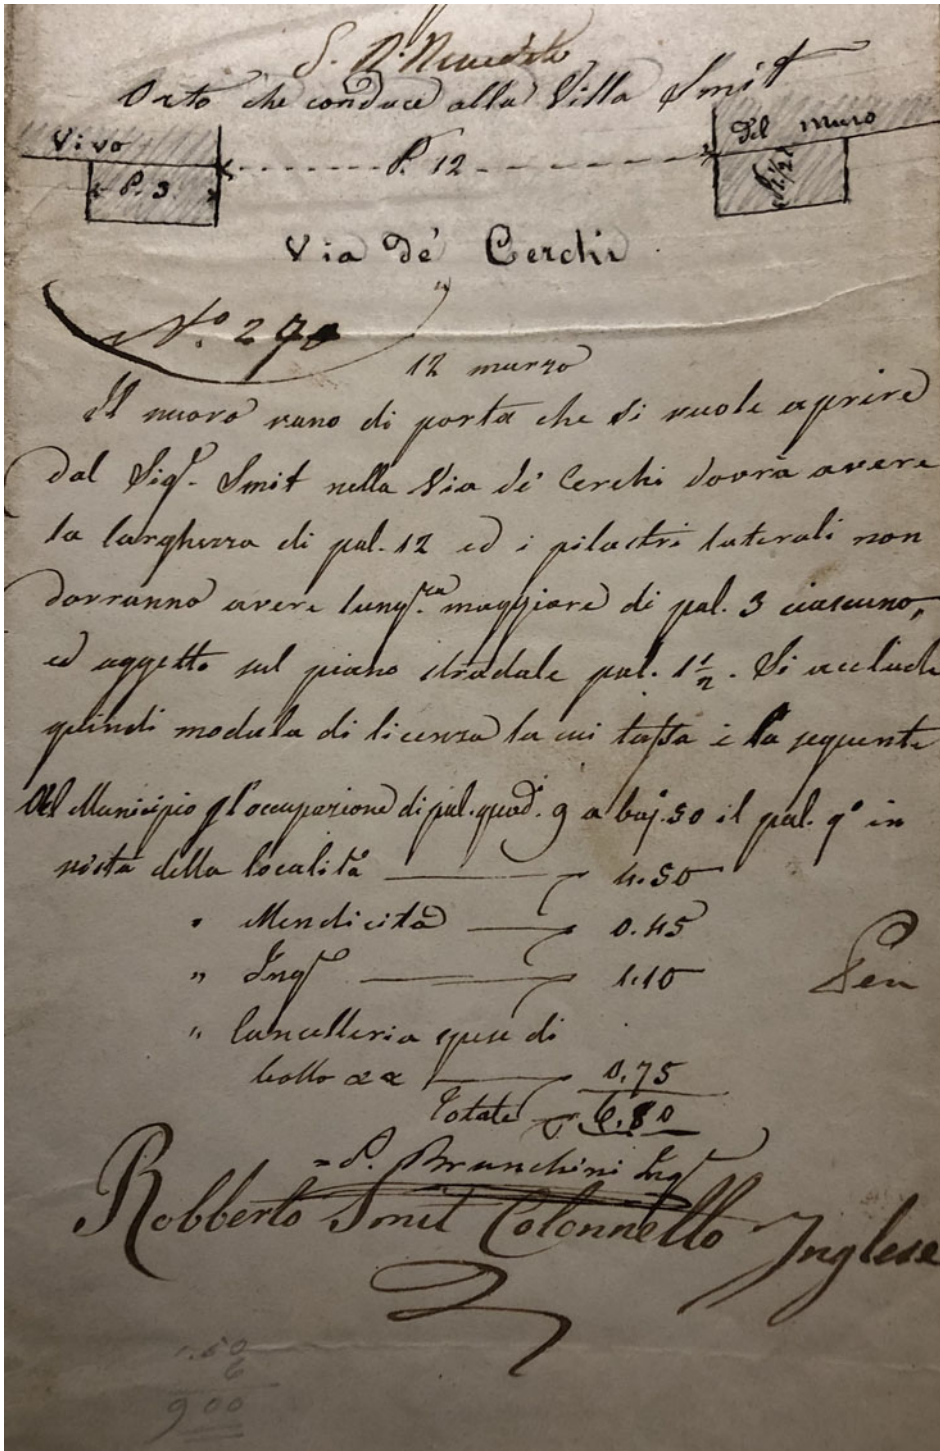 Orto che conduce alla Villa Smit
Vivo
Del muro
P. 12
P. 3
P. 1 1/2
Via de' Cerchi
N.° 270
12 marzo
Il nuovo vano di porta che si vuole aprire
dal Sigr. Smit nella Via de' Cerchi dovrà avere
la larghezza di pal. 12 ed i pilastri laterali non
dovranno avere lungh.za maggiore di pal. 3 ciascuno,
ed aggetto sul piano stradale pal. 1 1/2. Si acclude
quindi modula di licenza la cui tassa è la seguente
Al Municipio pl'occupazione di pal. quad. 9 a baj. 50 il pal. q° in
vista della località 4.50
" Mendicità 0.45
" Ingr 1.10
" Cancelleria spese di
bollo 0.75
Totale 6.80
= P. Brunchini Ingr
Robberto Smit Colonnello Inglese
1.50
6
9 00